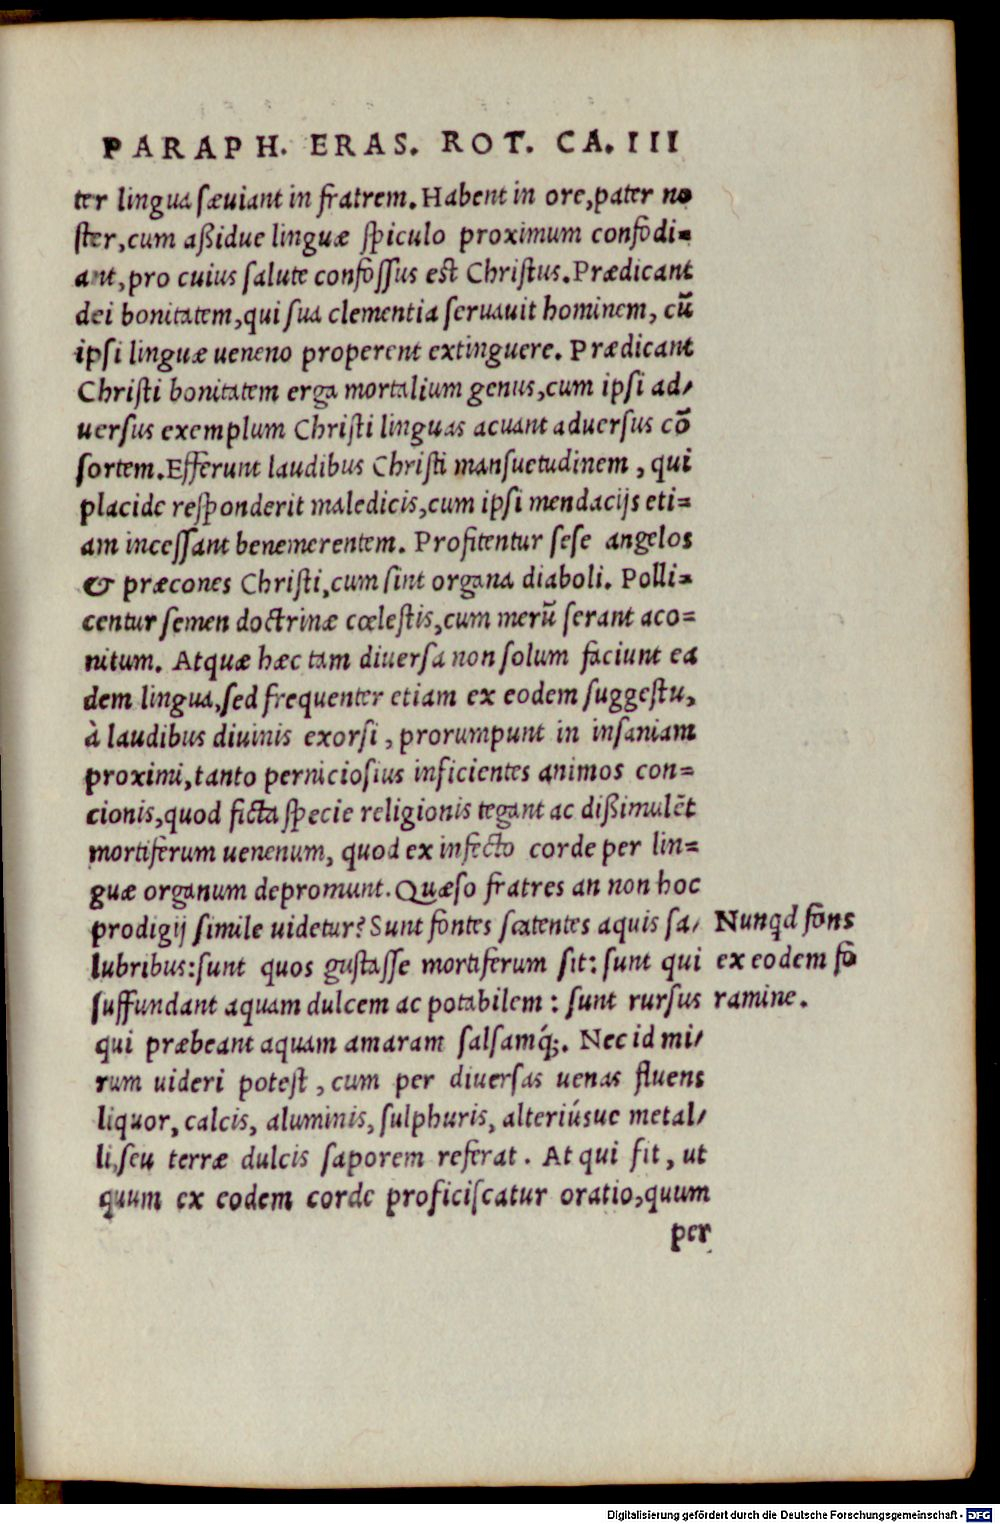 PARAPH. ERAS. ROT. CA. III
ter lingua sæuiant in fratrem. Habent in ore, pater no
ster, cum aßidue linguæ spiculo proximum confodi=
ant, pro cuius salute confossus est Christus. Prædicant
dei bonitatem, qui sua clementia seruauit hominem, cū
ipsi linguæ ueneno properent extinguere. Prædicant
Christi bonitatem erga mortalium genus, cum ipsi ad/
uersus exemplum Christi linguas acuant aduersus cō
sortem. Efferunt laudibus Christi mansuetudinem, qui
placide responderit maledicis, cum ipsi mendacijs eti=
am incessant benemerentem. Profitentur sese angelos
& præcones Christi, cum sint organa diaboli. Polli=
centur semen doctrinæ cœlestis, cum merū serant aco=
nitum. Atquæ hæc tam diuersa non solum faciunt ea
dem lingua, sed frequenter etiam ex eodem suggestu,
à laudibus diuinis exorsi, prorumpunt in insaniam
proximi, tanto perniciosius inficientes animos con=
cionis, quod ficta specie religionis tegant ac dißimulēt
mortiferum uenenum, quod ex infecto corde per lin=
guæ organum depromunt. Quæso fratres an non hoc
prodigij simile uidetur? Sunt fontes scatentes aquis sa/
lubribus: sunt quos gustasse mortiferum sit: sunt qui
suffundant aquam dulcem ac potabilem: sunt rursus
qui præbeant aquam amaram salsamq́;. Nec id mi/
rum uideri potest, cum per diuersas uenas fluens
liquor, calcis, aluminis, sulphuris, alteriúsue metal/
li, seu terræ dulcis saporem referat. At qui fit, ut
quum ex eodem corde proficiscatur oratio, quum
per
Nunqd fons
ex eodem fo
ramine.
Digitalisierung gefördert durch die Deutsche Forschungsgemeinschaft - DFG